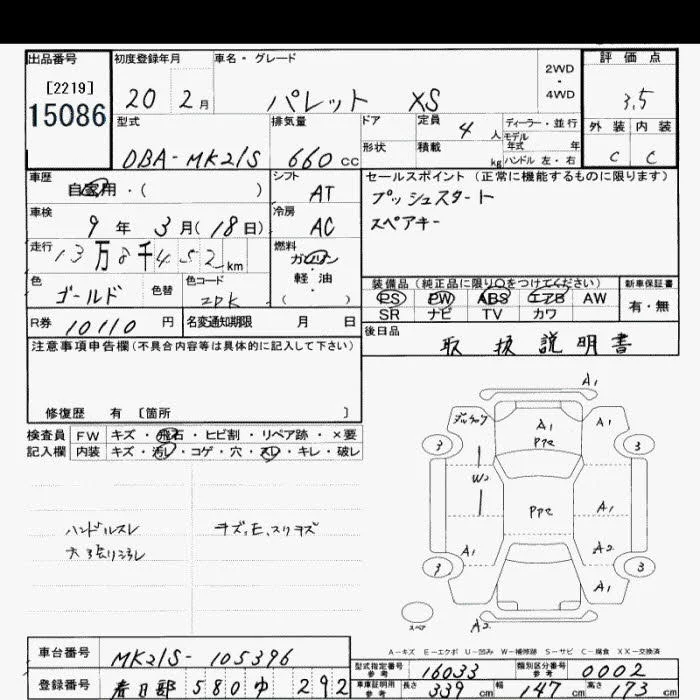 出品番号 初度登録年月 車名・グレード 2WD・4WD 評価点
[2219]
15086 20 2月 パレット XS 3.5
型式 排気量 ドア 定員 4人 ディーラー・並行 外装 内装
形状 積載 kg モデル年式 年 ハンドル 左・右
DBA-MK21S 660cc C C
車歴 シフト セールスポイント(正常に機能するものに限ります)
自家用・( ) AT プッシュスタート
車検 冷房 スペアキー
9年 3月(18日) AC
走行 燃料
13万8千452km ガソリン
軽油
( )
色 色替 色コード 装備品(純正品に限り○をつけてください) 新車保証書
ゴールド ZDK PS PW ABS エアB AW 有・無
SR ナビ TV カワ
R券 10110円 名変通知期限 月 日 後日品
注意事項申告欄(不具合内容等は具体的に記入して下さい) 取扱説明書
修復歴 有 〔箇所 〕
検査員 FW キズ・飛石・ヒビ割・リペア跡・×要
記入欄 内装 キズ・汚レ・コゲ・穴・スレ・キレ・破レ
ハンドルスレ
A1
A1 A1
PP2
3 3
W2
PP2 A1
A1 A2
3 3
A1
スペア A2
A-キズ E-エクボ U-凹み W-補修跡 S-サビ C-腐食 XX-交換済
車台番号 MK21S-105396 型式指定番号 参考 16033 類別区分番号 参考 0002
登録番号 春日部 580ゆ 292 車庫証明用 参考 長さ 339cm 幅 147cm 高さ 173cm